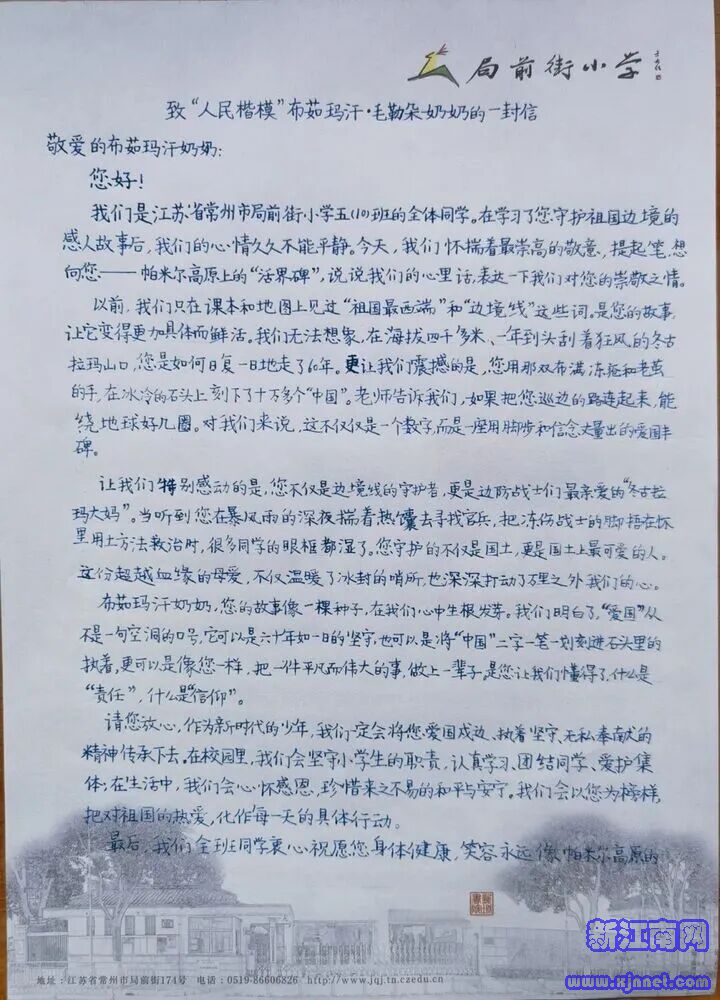 局前街小学
致“人民楷模”布茹玛汗·毛勒朵奶奶的一封信
敬爱的布茹玛汗奶奶：
您好！
我们是江苏省常州市局前街小学五（10）班的全体同学。在学习了您守护祖国边境的
感人故事后，我们的心情久久不能平静。今天，我们怀揣着最崇高的敬意，提起笔，想
向您——帕米尔高原上的“活界碑”，说说我们的心里话，表达一下我们对您的崇敬之情。
以前，我们只在课本和地图上见过“祖国最西端”和“边境线”这些词。是您的故事，
让它变得更加具体而鲜活。我们无法想象，在海拔四千多米、一年到头刮着狂风的冬古
拉玛山口，您是如何日复一日地走了60年。更让我们震撼的是，您用那双布满冻疮和老茧
的手，在冰冷的石头上刻下了十万多个“中国”。老师告诉我们，如果把您巡边的路连起来，能
绕地球好几圈。对我们来说，这不仅仅是一个数字，而是一座用脚步和信念丈量出的爱国丰
碑。
让我们特别感动的是，您不仅是边境线的守护者，更是边防战士们最亲爱的“冬古拉
玛大妈”。当听到您在暴风雨的深夜揣着热馕去寻找官兵，把冻伤战士的脚捂在怀
里用土方法救治时，很多同学的眼眶都湿了。您守护的不仅是国土，更是国土上最可爱的人。
这份超越血缘的母爱，不仅温暖了冰封的哨所，也深深打动了万里之外我们的心。
布茹玛汗奶奶，您的故事像一棵种子，在我们心中生根发芽。我们明白了，“爱国”从
不是一句空洞的口号，它可以是六十年如一日的坚守，也可以是将“中国”二字一笔一划刻进石头里的
执着，更可以是像您一样，把一件平凡而伟大的事，做上一辈子。是您让我们懂得了，什么是
“责任”，什么是“信仰”。
请您放心，作为新时代的少年，我们一定会将您爱国戍边、执着坚守、无私奉献的
精神传承下去。在校园里，我们会坚守小学生的职责，认真学习、团结同学、爱护集
体；在生活中，我们会心怀感恩，珍惜来之不易的和平与安宁。我们会以您为榜样，
把对祖国的热爱，化作每一天的具体行动。
最后，我们全班同学衷心祝愿您身体健康，笑容永远像帕米尔高原的
地址：江苏省常州市局前街174号 电话：0519-86606826 http://www.jqj.tn.czedu.cn
新江南网
www.xjnnet.com